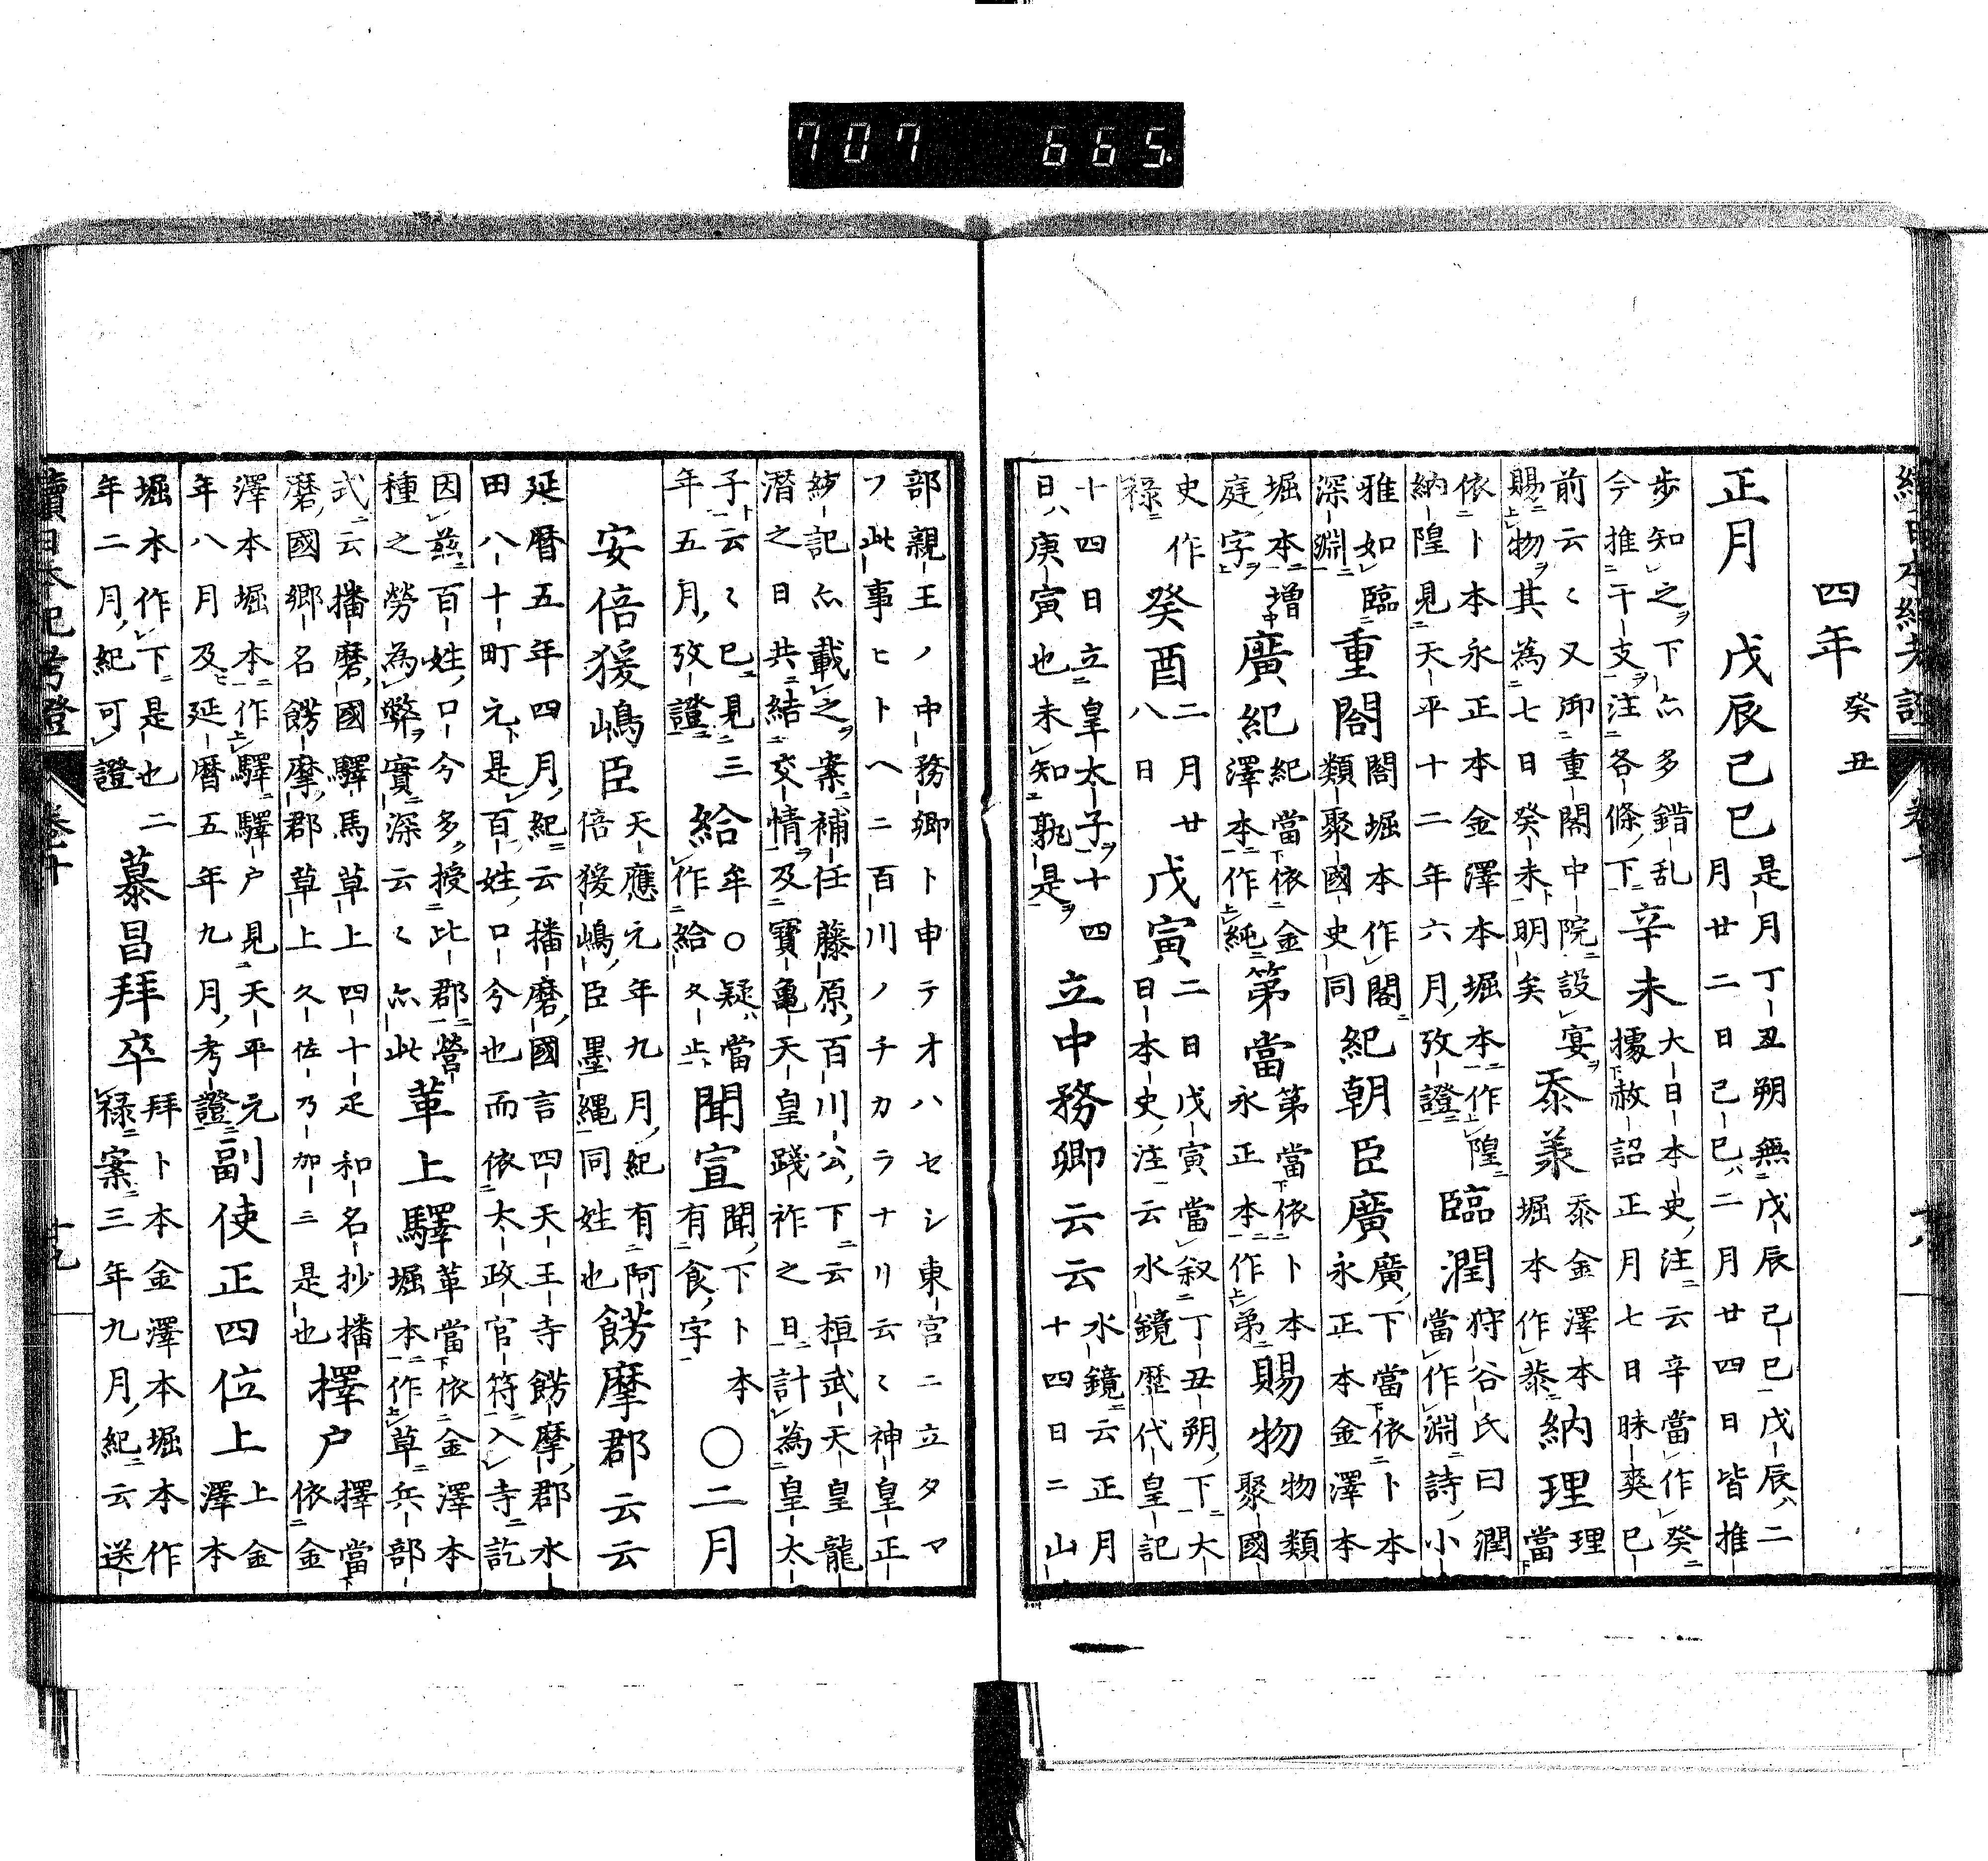 續日本紀考證 卷十 十八
四年 癸丑
正月 戊辰己巳 是月丁丑朔無戊辰己巳戊辰ハ二月廿二日己巳ハ二月廿四日皆推
歩知之下亦多錯乱今推干支注各條下 辛未 大日本史注云辛當作癸據赦詔正月七日昧爽巳
前云〻又御重閣中院設宴賜物其為七日癸未明矣 忝羕 忝金澤本堀本作泰 納理 理當
依卜本永正本金澤本堀本作隍納隍見天平十二年六月攷證 臨潤 狩谷氏曰潤當作淵詩小
雅如臨深淵 重閤 閤堀本作閣類聚國史同 紀朝臣廣 廣下當依卜本永正本金澤本
堀本增庭字 廣紀 紀當依金澤本作純 第當 第當依卜本永正本作弟 賜物 物類聚國
史作祿 癸酉 二月廿八日 戊寅 二日戊寅當叙丁丑朔下大日本史注云水鏡歴代皇記
十四日立皇太子十四日ハ庚寅也未知孰是 立中務卿云云 水鏡云正月十四日ニ山
部親王ノ中務卿ト申テオハセシ東宮ニ立タマフ此事ヒトヘニ百川ノチカラナリ云〻神皇正
統記亦載之案補任藤原百川公下云桓武天皇龍潛之日共結交情及寶龜天皇踐祚之日計為皇太
子云〻已見三年五月攷證 給牟 ○疑當作給夂止 聞宣 聞下卜本有食字 ○二月
安倍猨嶋臣 天應元年九月紀有阿倍猨嶋臣墨繩同姓也 餝摩郡云云
延暦五年四月紀云播磨國言四天王寺餝摩郡水田八十町元是百姓口分也而依太政官符入寺訖
因茲百姓口分多授比郡營種之勞為弊實深云〻亦此 革上驛 革當依金澤本堀本作草兵部
式云播磨國驛馬草上四十疋和名抄播磨國郷名餝摩郡草上久佐乃加三是也 擇戸 擇當依金
澤本堀本作驛驛戸見天平元年八月及延暦五年九月考證 副使正四位上 上金澤本
堀本作下是也二年二月紀可證 慕昌拜卒 拜卜本金澤本堀本作祿案三年九月紀云送
續日本紀考證 卷十 十九
707 665.